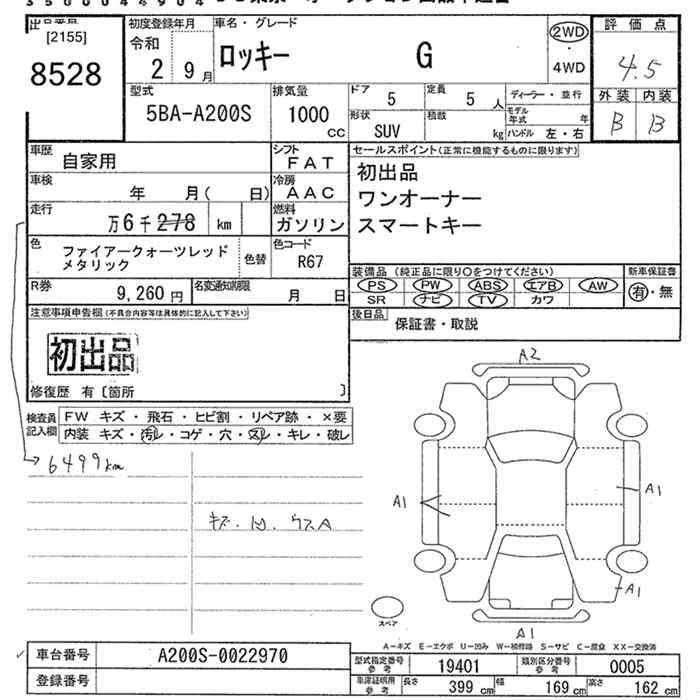 3500044904
出品番号
[2155]
8528
初度登録年月
令和
2 9月
車名・グレード
ロッキー G
2WD
4WD
評価点
4.5
外装 内装
B B
型式
5BA-A200S
排気量
1000 cc
ドア
5
定員
5 人
形状
SUV
積載
kg
ディーラー・並行
モデル年式 年
ハンドル 左・右
車歴
自家用
シフト
FAT
車検
年 月( 日)
冷房
AAC
走行
万6千278 km
燃料
ガソリン
セールスポイント(正常に機能するものに限ります)
初出品
ワンオーナー
スマートキー
色
ファイアークォーツレッド
メタリック
色替
色コード
R67
装備品(純正品に限り○をつけてください)
PS PW ABS エアB AW
SR ナビ TV カワ
新車保証書
有・無
R券
9,260 円
名変通知期限
月 日
後日品
保証書・取説
注意事項申告欄(不具合内容等は具体的に記入して下さい)
初出品
修復歴 有〔箇所 〕
検査員記入欄
FW キズ・飛石・ヒビ割・リペア跡・×要
内装 キズ・汚レ・コゲ・穴・スレ・キレ・破レ
→6499km
A2
A1
A1
A1
A1
スペア
A-キズ E-エクボ U-凹み W-補修跡 S-サビ C-腐食 XX-交換済
車台番号
A200S-0022970
登録番号
型式指定番号 参考
19401
類別区分番号 参考
0005
車庫証明用 参考
長さ 399 cm 幅 169 cm 高さ 162 cm